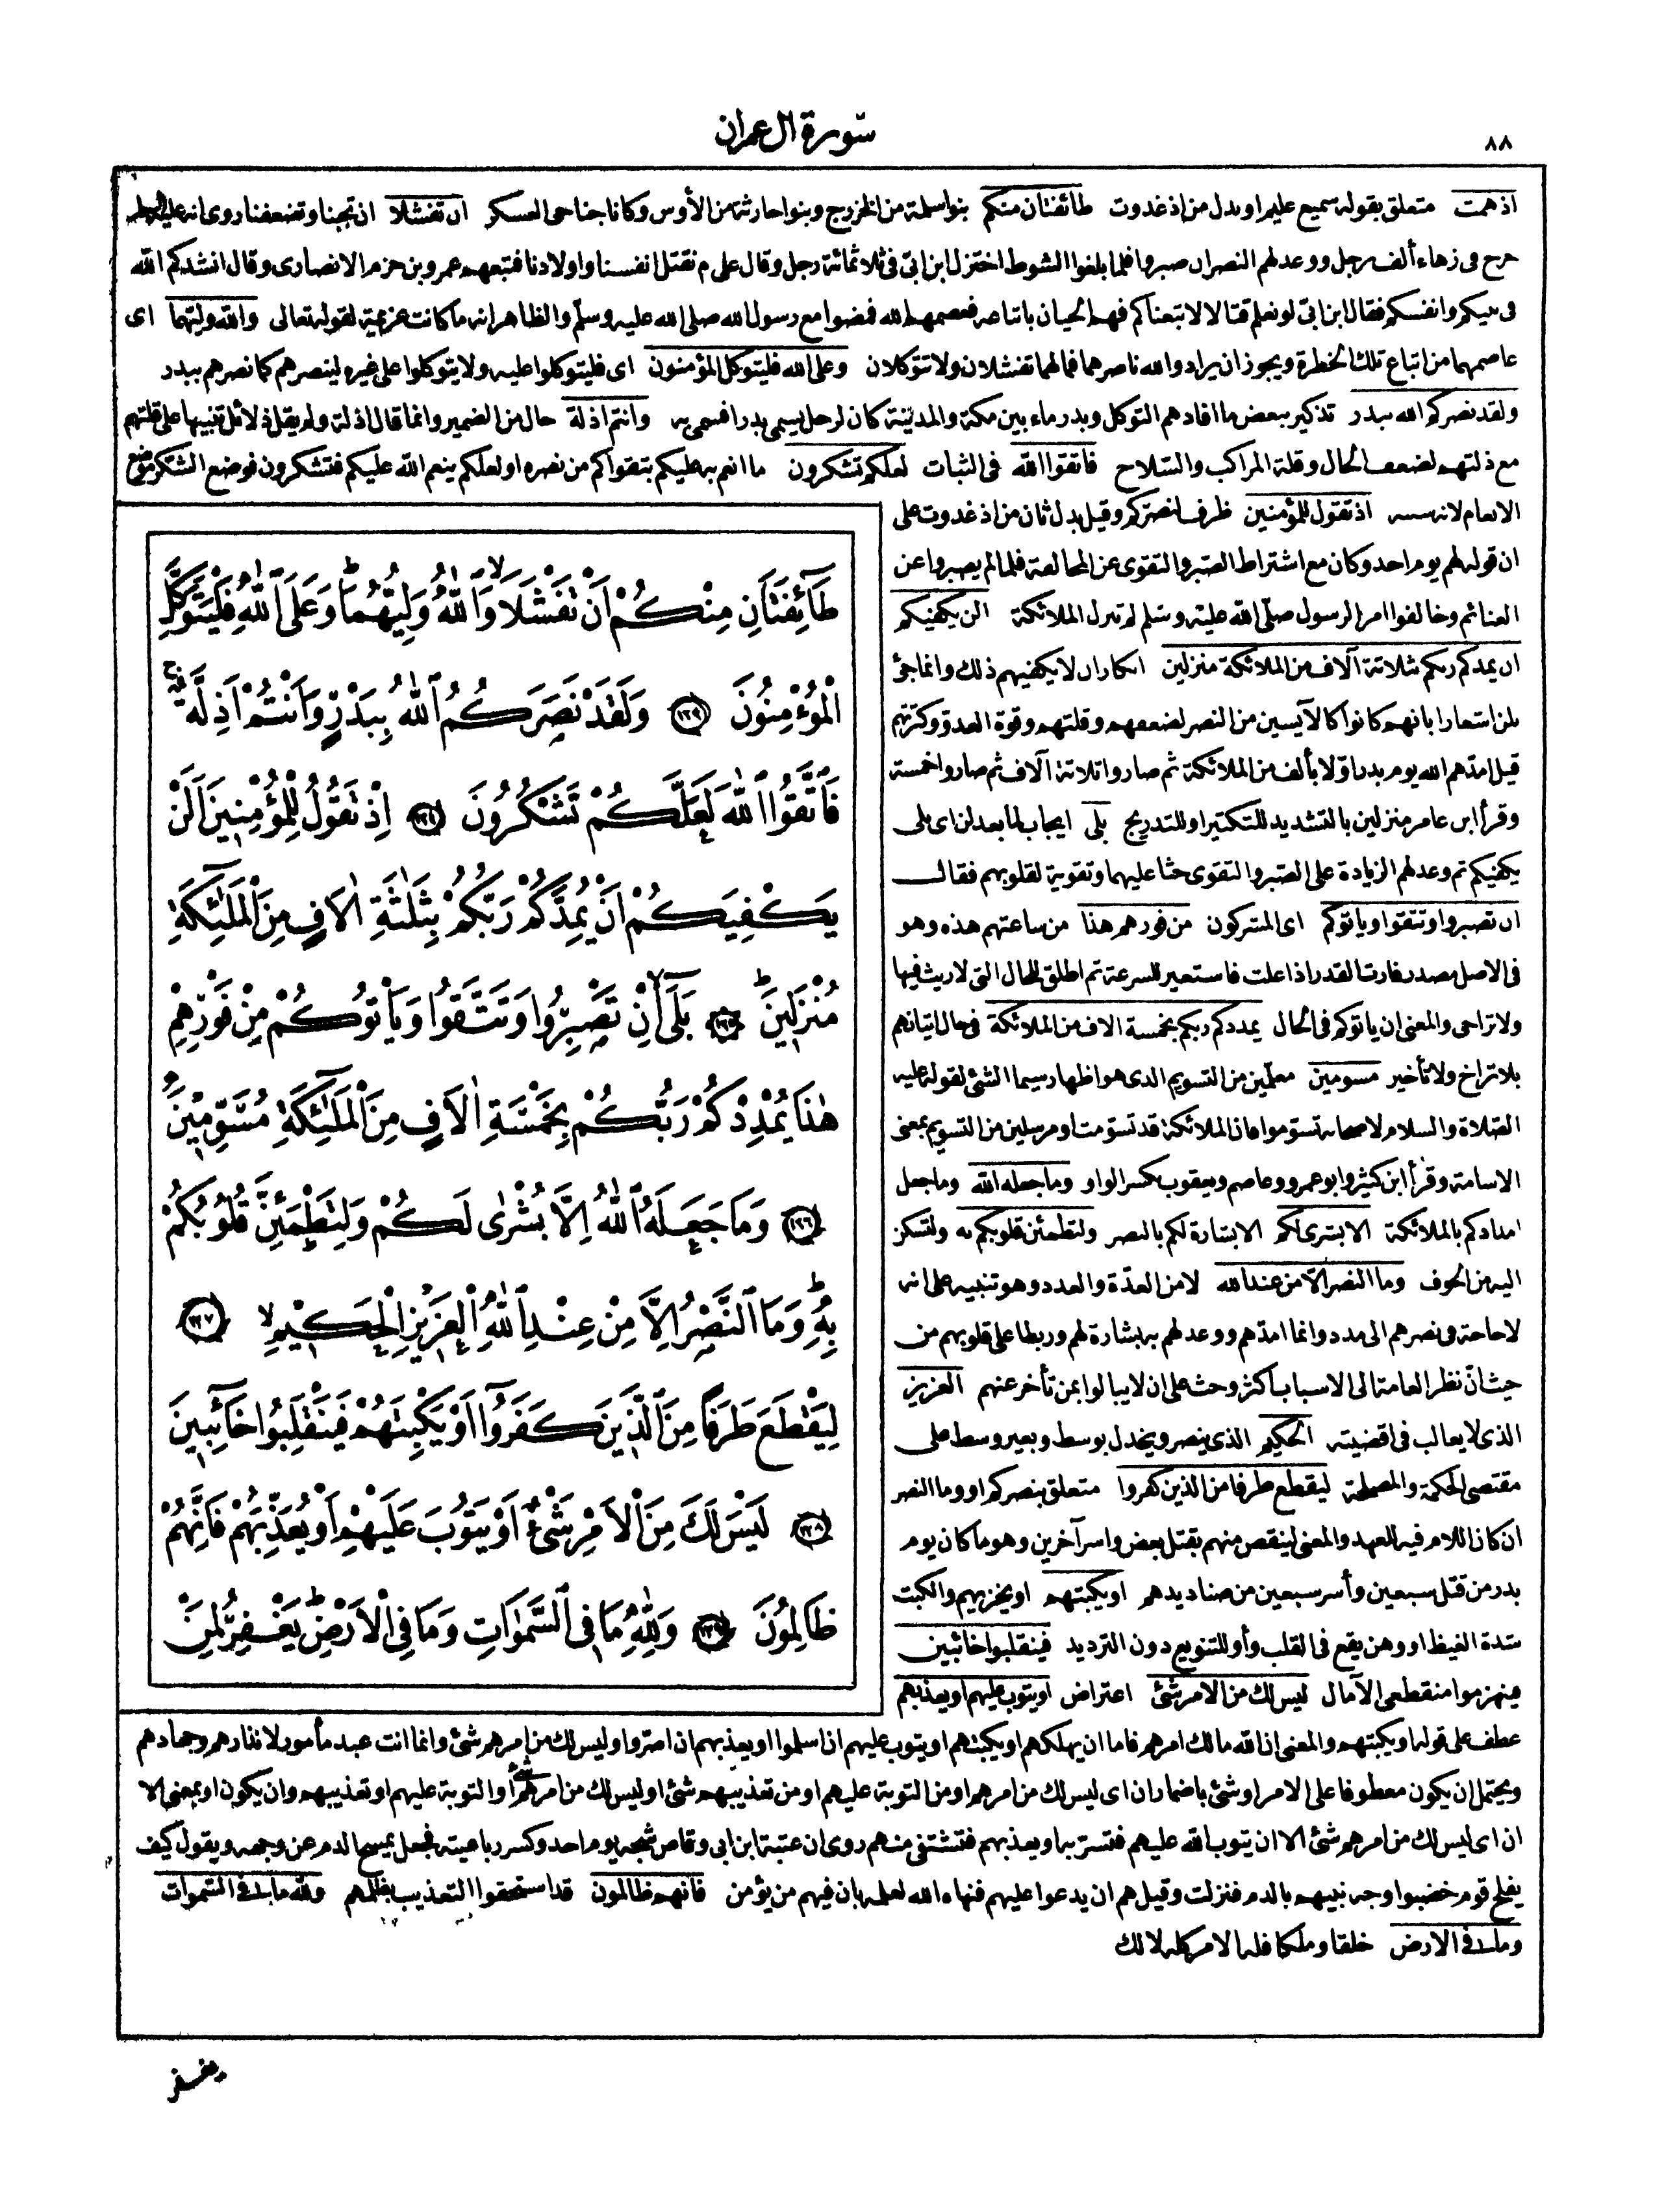 ٨٨
سورة ال عمران
اذ همت متعلق بقوله سميع عليم او بدل من اذ غدوت طائفتان منكم بنوا سلمة من الخزرج وبنوا حارثة من الأوس وكانا جناحى العسكر ان تفشلا ان تجبنا وتضعفنا روى انه عليه
خرج فى زهاء ألف رجل ووعد لهم النصر ان صبروا فلما بلغوا الشوط اختزل ابن ابىّ فى ثلاثمائة رجل وقال علىم نقتل انفسنا واولادنا فتبعهم عمرو بن حزم الانصارى وقال انشدكم الله
فى نبيكم وانفسكم فقال ابن ابىّ لو نعلم قتالا لاتبعناكم فهم الحيان باتباعه فعصمهم الله فمضوا مع رسول الله صلى الله عليه وسلم والظاهر انه ما كانت عزيمة لقوله تعالى والله وليهما اى
عاصمهما من اتباع تلك الخطرة ويجوز ان يراد والله ناصرهما فمالهما تفشلان ولا تتوكلان وعلى الله فليتوكل المؤمنون اى فليتوكلوا عليه ولا يتوكلوا على غيره لينصرهم كما نصرهم ببدر
ولقد نصركم الله ببدر تذكير ببعض ما افادهم التوكل وبدر ماء بين مكة والمدينة كان لرجل يسمى بدرا فسمى به وانتم اذلة حال من الضمير وانما قال اذلة ولم يقل ذلائل تنبيها على قلتهم
مع ذلتهم لضعف الحال وقلة المراكب والسلاح فاتقوا الله فى الثبات لعلكم تشكرون ما انعم به عليكم بتقواكم من نصره او لعلكم ينعم الله عليكم فتشكرون فوضع الشكر موضع
الانعام لانه سببه اذ تقول للمؤمنين ظرف لنصركم وقيل بدل ثان من اذ غدوت على
ان قوله لهم يوم احد وكان مع اشتراط الصبر والتقوى عن المخالفة فلما لم يصبروا عن
الغنائم وخالفوا امر الرسول صلّى الله عليه وسلم لم تنزل الملائكة الن يكفيكم
ان يمدكم ربكم بثلاثة آلاف من الملائكة منزلين انكار ان لا يكفيهم ذلك وانما جئ
بلن اشعارا بانهم كانوا كالآيسين من النصر لضعفهم وقلتهم وقوة العدو وكثرتهم
قيل امدّهم الله يوم بدر اوّلا بألف من الملائكة ثم صاروا ثلاثة آلاف ثم صاروا خمسة
وقرأ ابن عامر منزلين بالتشديد للتكثير او للتدريج بلى ايجاب لما بعد لن اى بلى
يكفيكم ثم وعد لهم الزيادة على الصبر والتقوى حثا عليهما وتقوية لقلوبهم فقال
ان تصبروا وتتقوا وياتوكم اى المشركون من فورهم هذا من ساعتهم هذه وهو
فى الاصل مصدر فارت القدر اذا غلت فاستعير للسرعة ثم اطلق للحال التى لا ريث فيها
ولا تراخى والمعنى ان ياتوكم فى الحال يمددكم ربكم بخمسة الاف من الملائكة فى حال اتيانهم
بلا تراخ ولا تأخير مسومين معلّمين من التسويم الذى هو اظهار سيما الشئ لقوله عليه
الصلاة والسلام لاصحابه تسوّموا فان الملائكة قد تسوّمت او مرسلين من التسويم بمعنى
الاسامة وقرأ ابن كثير وابو عمرو وعاصم ويعقوب بكسر الواو وما جعله الله وما جعل
امدادكم بالملائكة الا بشرى لكم الا بشارة لكم بالنصر ولتطمئن قلوبكم به ولتسكن
اليه من الخوف وما النصر الّا من عند الله لا من العدّة والعدد وهو تنبيه على انه
لا حاجة فى نصرهم الى مدد وانما امدّهم ووعد لهم به بشارة لهم وربطا على قلوبهم من
حيث انّ نظر العامة الى الاسباب اكثر وحث على ان لا يبالوا بمن تأخر عنهم العزيز
الذى لا يغالب فى اقضيته الحكيم الذى ينصر ويخذل بوسط وبغير وسط على
مقتضى الحكمة والمصلحة ليقطع طرفا من الذين كفروا متعلق بنصركم او وما النصر
ان كان اللام فيه للعهد والمعنى لينقص منهم بقتل بعض واسر آخرين وهو ما كان يوم
بدر من قتل سبعين وأسر سبعين من صناديدهم او يكبتهم او يخزيهم والكبت
شدة الغيظ او وهن يقع فى القلب وأو للتنويع دون الترديد فينقلبوا خائبين
فينهزموا منقطعى الآمال ليس لك من الامر شئ اعتراض او يتوب عليهم او يعذبهم
عطف على قوله او يكبتهم والمعنى ان الله مالك امرهم فاما ان يهلكهم او يكبتهم او يتوب عليهم ان اسلموا او يعذبهم ان اصرّوا وليس لك من امرهم شئ وانما انت عبد مأمور لانذارهم وجهادهم
ويحتمل ان يكون معطوفا على الامر او شئ باضمار ان اى ليس لك من امرهم او من التوبة عليهم او من تعذيبهم شئ او ليس لك من امرهم شئ او التوبة عليهم او تعذيبهم وان يكون او بمعنى الا
ان اى ليس لك من امرهم شئ الا ان يتوب الله عليهم فتسرّ به او يعذبهم فتشتفى منهم روى ان عتبة ابن ابى وقاص شجه يوم احد وكسر رباعيته فجعل يمسح الدم عن وجهه ويقول كيف
يفلح قوم خضبوا وجه نبيهم بالدم فنزلت وقيل هم ان يدعوا عليهم فنهاه الله لعلمه بان فيهم من يؤمن فانهم ظالمون قد استحقوا التعذيب بظلمهم ولله ما فى السموات
وما فى الارض خلقا وملكا فله الامر كله لا لك
طَآئِفَتَانِ مِنْكُمْ اَنْ تَفْشَلَاۙ وَاللّٰهُ وَلِيُّهُمَاۜ وَعَلَى اللّٰهِ فَلْيَتَوَكَّلِ
الْمُؤْمِنُونَ ﴿١٢٢﴾ وَلَقَدْ نَصَرَكُمُ اللّٰهُ بِبَدْرٍ وَاَنْتُمْ اَذِلَّةٌۚ
فَاتَّقُوا اللّٰهَ لَعَلَّكُمْ تَشْكُرُونَ ﴿١٢٣﴾ اِذْ تَقُولُ لِلْمُؤْمِنِينَ اَلَنْ
يَكْفِيَكُمْ اَنْ يُمِدَّكُمْ رَبُّكُمْ بِثَلٰثَةِ اٰلَافٍ مِنَ الْمَلٰٓئِكَةِ
مُنْزَلِينَۜ ﴿١٢٤﴾ بَلٰٓىۙ اِنْ تَصْبِرُوا وَتَتَّقُوا وَيَأْتُوكُمْ مِنْ فَوْرِهِمْ
هٰذَا يُمْدِدْكُمْ رَبُّكُمْ بِخَمْسَةِ اٰلَافٍ مِنَ الْمَلٰٓئِكَةِ مُسَوِّمِينَ
﴿١٢٦﴾ وَمَا جَعَلَهُ اللّٰهُ اِلَّا بُشْرٰى لَكُمْ وَلِتَطْمَئِنَّ قُلُوبُكُمْ
بِهۜ وَمَا النَّصْرُ اِلَّا مِنْ عِنْدِ اللّٰهِ الْعَزِيزِ الْحَكِيمِۙ ﴿١٢٧﴾
لِيَقْطَعَ طَرَفًا مِنَ الَّذِينَ كَفَرُٓوا اَوْ يَكْبِتَهُمْ فَيَنْقَلِبُوا خَآئِبِينَ
﴿١٢٨﴾ لَيْسَ لَكَ مِنَ الْاَمْرِ شَيْءٌ اَوْ يَتُوبَ عَلَيْهِمْ اَوْ يُعَذِّبَهُمْ فَاِنَّهُمْ
ظَالِمُونَ ﴿١٢٩﴾ وَلِلّٰهِ مَا فِى السَّمٰوَاتِ وَمَا فِى الْاَرْضِۜ يَغْفِرُ لِمَنْ
يغفر